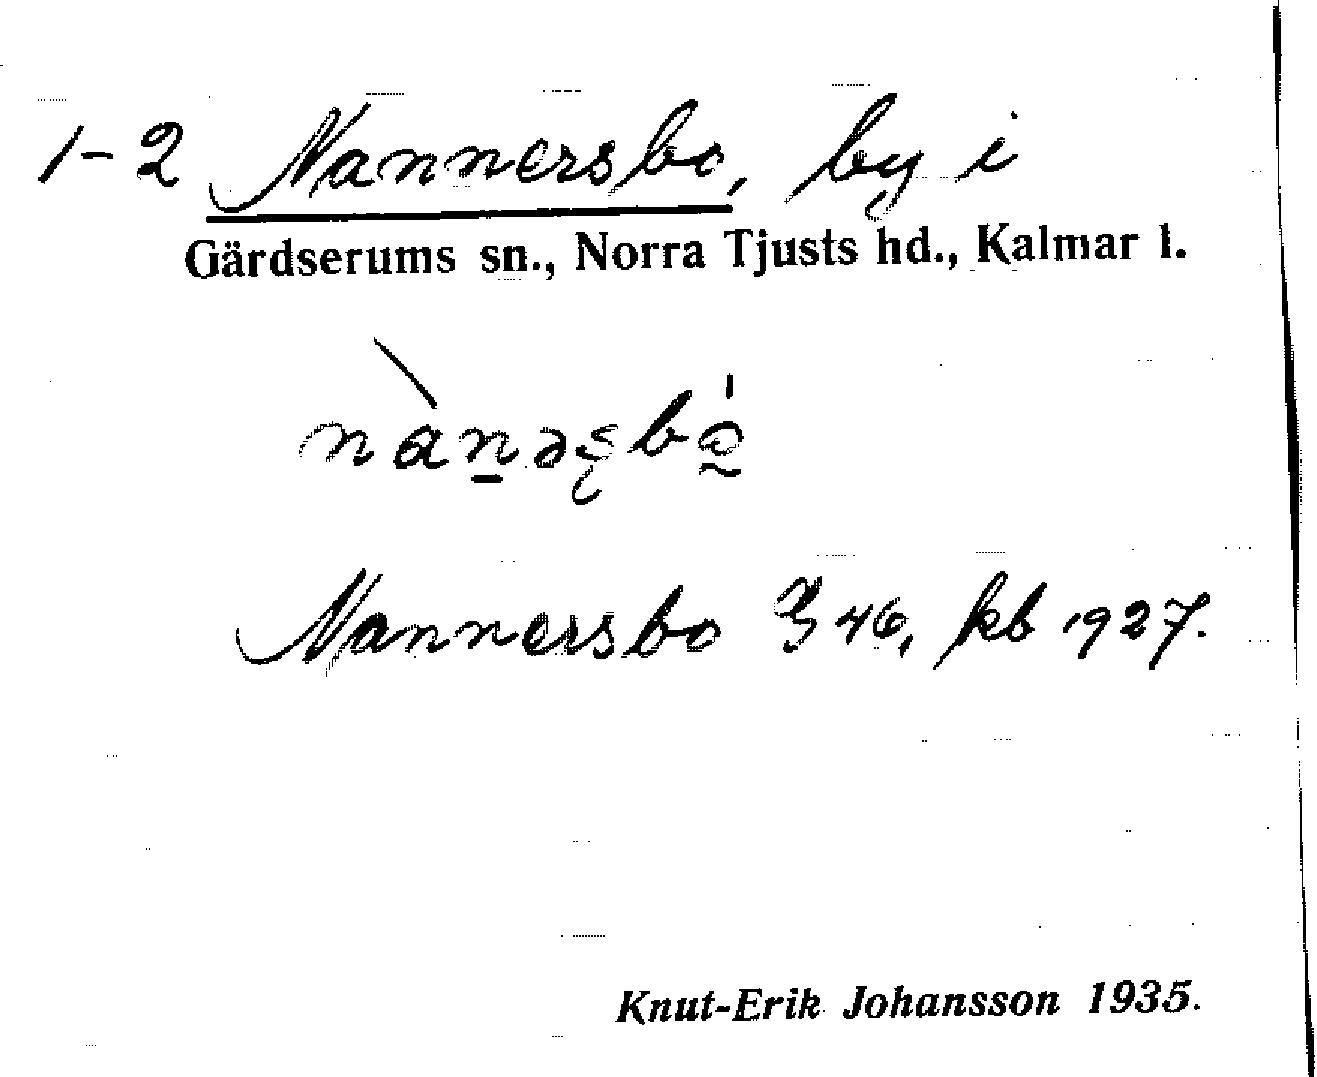 1-2 Nannersbo, by i
Gärdserums sn., Norra Tjusts hd., Kalmar l.
Nannersbo 346, kb 1927.
Knut-Erik Johansson 1935.